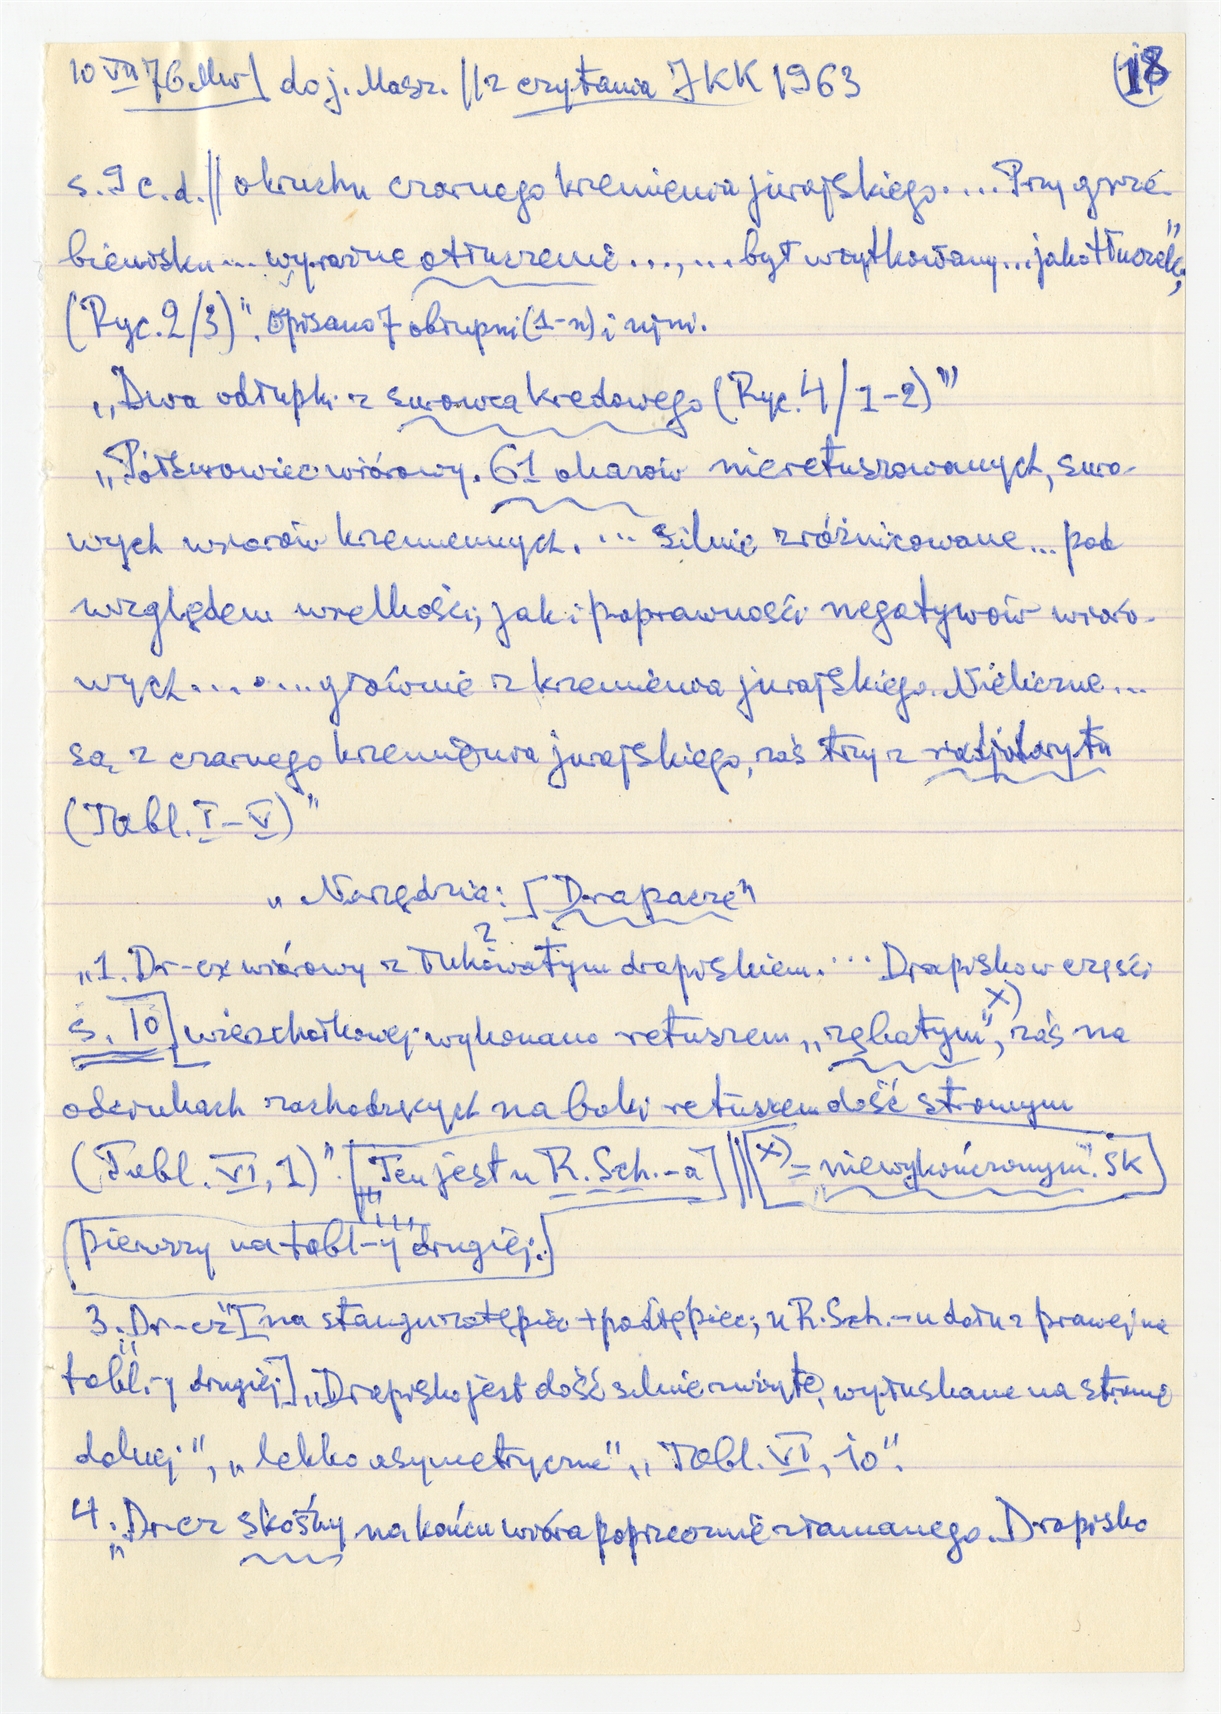 10 VII 76. Mw] do j. Masz. || z czytania JKK 1963
18
s. 9 c.d. || okruchu czarnego krzemienia jurajskiego.... Przy grze-
bienisku... wyraźne otłuczenie ...,... był użytkowany... jako tłuczek",
(Ryc. 2/3)". Opisano 7 obłupni (1-n) i nimi.
„Dwa odłupki z surowca kredowego (Ryc. 4/1-2)"
„Półsurowiec wiórowy. 61 okazów nieretuszowanych, suro-
wych wiórów krzemiennych. ... silnie zróżnicowane... pod
względem wielkości, jak i poprawności negatywów wióro-
wych....... głównie z krzemienia jurajskiego. Nieliczne...
są z czarnego krzemienia jurajskiego, zaś trzy z radiolarytu
(Tabl. I-V)"
„Narzędzia: [Drapacze"
„1. Dr-cz wiórowy z łukowatym drapiskiem.... Drapisko w części
s. 10] wierzchołkowej wykonano retuszem „zębatym" x), zaś na
odcinkach zachodzących na boki retuszem dość stromym
(Tabl. VI, 1)". [Ten jest u R. Sch.-a] || [x) = „niewykończonym". SK]
pierwszy na tabl-y drugiej.]
3. „Dr-cz" [na stanowi zatępiec + podtępiec; u R. Sch.-u dołu z prawej na
tabl-y drugiej] „Drapisko jest dość silnie zużyte, wyłuskane na stronie
dolnej", „lekko asymetryczne", „Tabl. VI, 10".
4. „Dr-cz skośny na końcu wióra poprzecznie złamanego. Drapisko